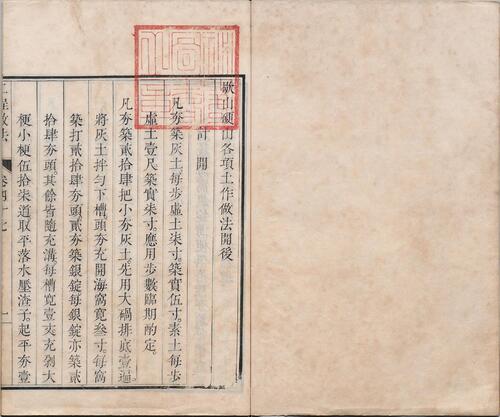 歇山硬山各項土作做法開後
計開
凡夯築灰土每步虛土柒寸築實伍寸素土每步
虛土壹尺築實柒寸應用步數臨期酌定
凡夯築貳拾肆把小夯灰土先用大硪排底壹遍
將灰土拌勻下槽頭夯充開海窩寬叁寸每窩
築打貳拾肆夯頭貳夯築銀錠每銀錠亦築貳
拾肆夯頭其餘皆隨充溝每槽寬壹丈充剁大
梗小梗伍拾柒道取平落水壓渣子起平夯壹
工程做法 卷四十七 一